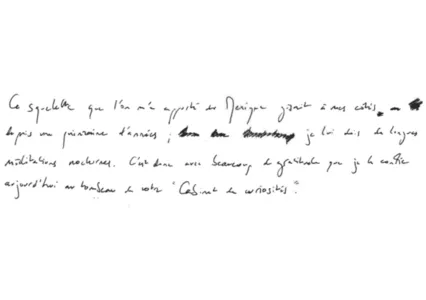 Ce squelette que l'on m'a apporté du Mexique gisait à mes côtés
depuis une quinzaine d'années ; je lui dois de longues
méditations nocturnes. C'est donc avec beaucoup de gratitude que je le confie
aujourd'hui au tombeau de votre "Cabinet de curiosités".